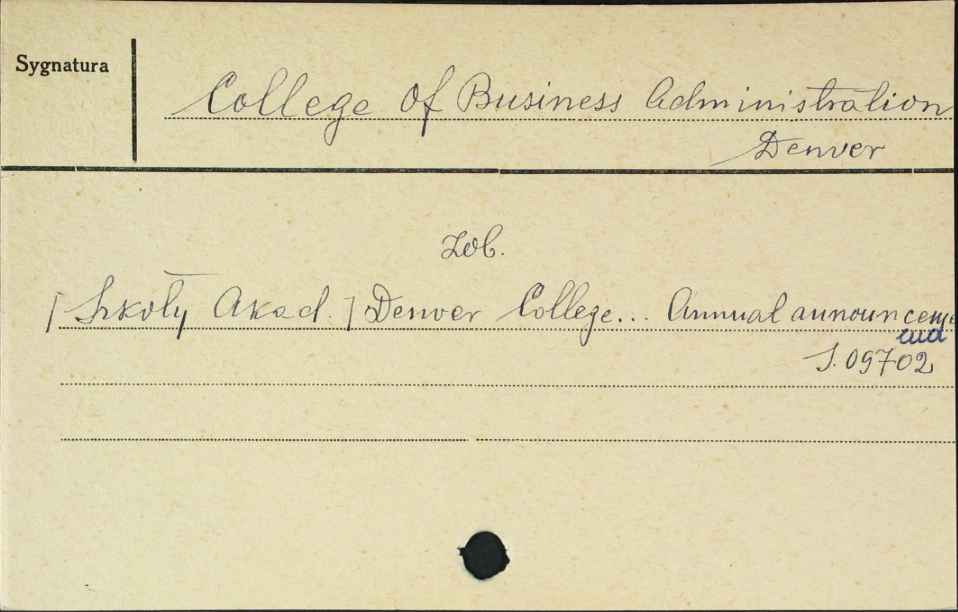 Sygnatura
College Of Business Administration
Denver
Zob.
[Szkoły Akad.] Denver College... Annual announceme
S. 09702